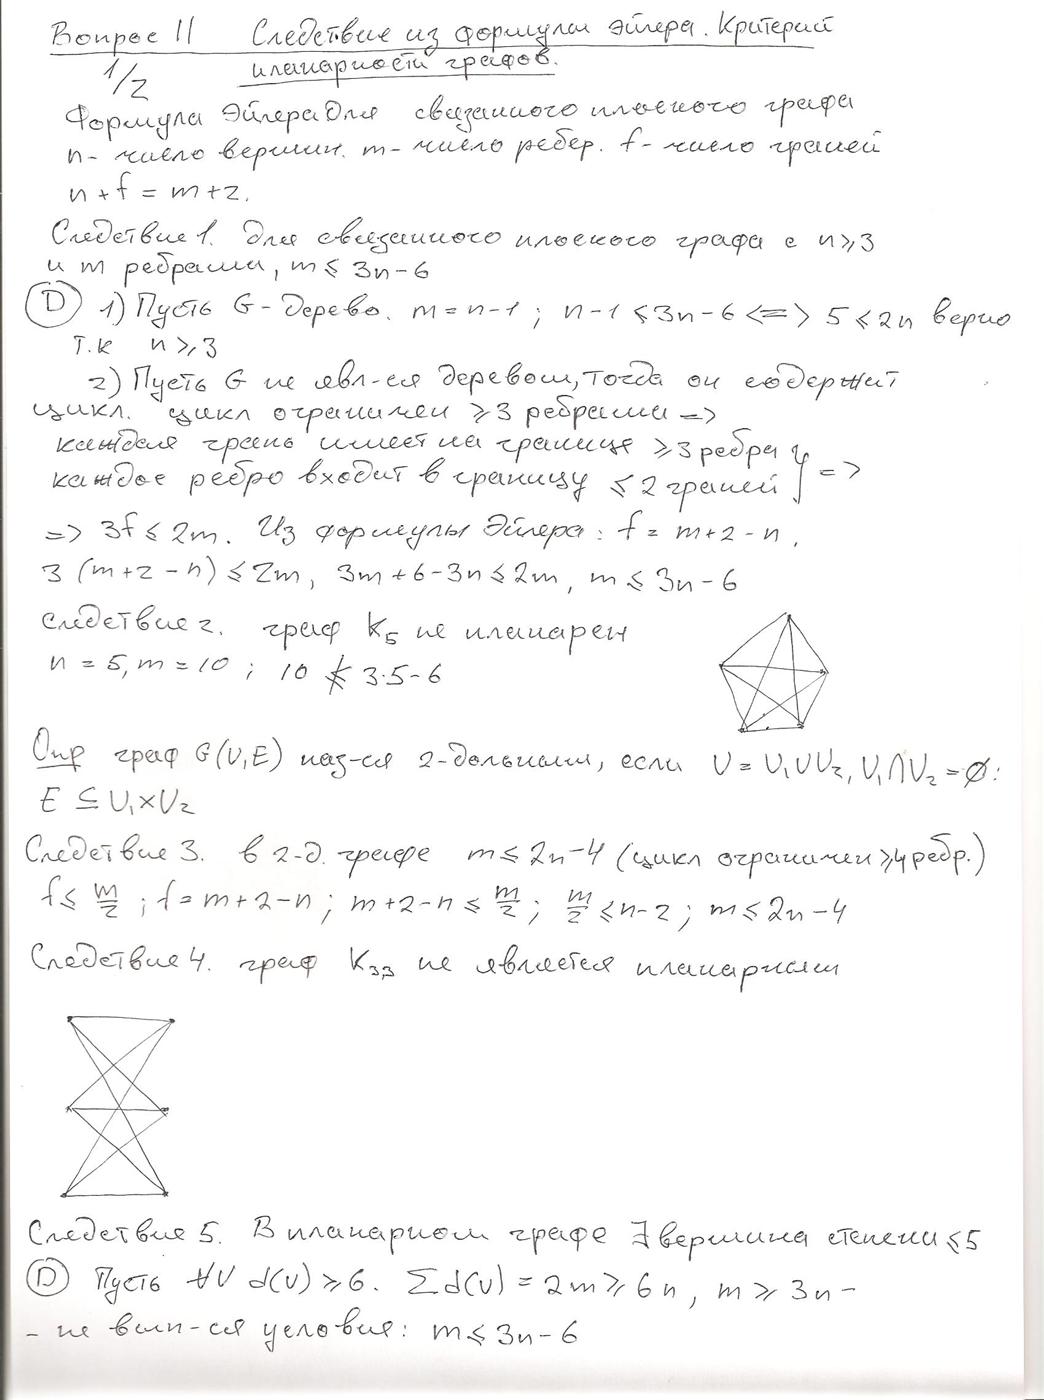 Вопрос 11 Следствие из формулы Эйлера. Критерий
планарности графов.
1/2
Формула Эйлера для связанного плоского графа
n - число вершин. m - число ребер. f - число граней
n + f = m + 2.
Следствие 1. Для связанного плоского графа с n ⩾ 3
и m ребрами, m ⩽ 3n - 6
Ⓓ 1) Пусть G - дерево. m = n - 1 ; n - 1 ⩽ 3n - 6 <=> 5 ⩽ 2n верно
т.к n ⩾ 3
2) Пусть G не явл-ся деревом, тогда он содержит
цикл. цикл ограничен ⩾ 3 ребрами =>
каждая грань имеет на границе ⩾ 3 ребра
каждое ребро входит в границу ⩽ 2 граней } =>
=> 3f ⩽ 2m. Из формулы Эйлера : f = m + 2 - n .
3 (m + 2 - n) ⩽ 2m, 3m + 6 - 3n ⩽ 2m, m ⩽ 3n - 6
Следствие 2. граф K₅ не планарен
n = 5, m = 10 ; 10 ⩽̸ 3·5 - 6
Опр граф G(V,E) наз-ся 2-дольным, если V = V₁∪V₂, V₁∩V₂ = ∅ :
E ⊆ V₁×V₂
Следствие 3. в 2-д. графе m ⩽ 2n - 4 (цикл ограничен ⩾ 4 ребр.)
f ⩽ m/2 ; f = m + 2 - n ; m + 2 - n ⩽ m/2 ; m/2 ⩽ n - 2 ; m ⩽ 2n - 4
Следствие 4. граф K₃₃ не является планарным
Следствие 5. В планарном графе ∃ вершина степени ⩽ 5
Ⓓ Пусть ∀V d(v) ⩾ 6. Σd(v) = 2m ⩾ 6n , m ⩾ 3n -
- не вып-ся условия : m ⩽ 3n - 6